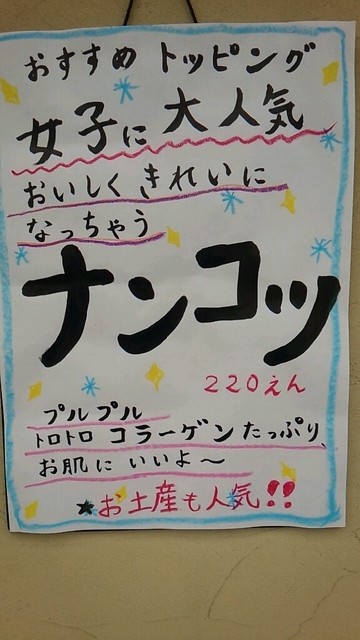 おすすめ トッピング
女子に 大人気
おいしく きれいに
なっちゃう
ナンコツ
220えん
プルプル
トロトロ コラーゲン たっぷり、
お肌に いいよ〜
★お土産も人気!!